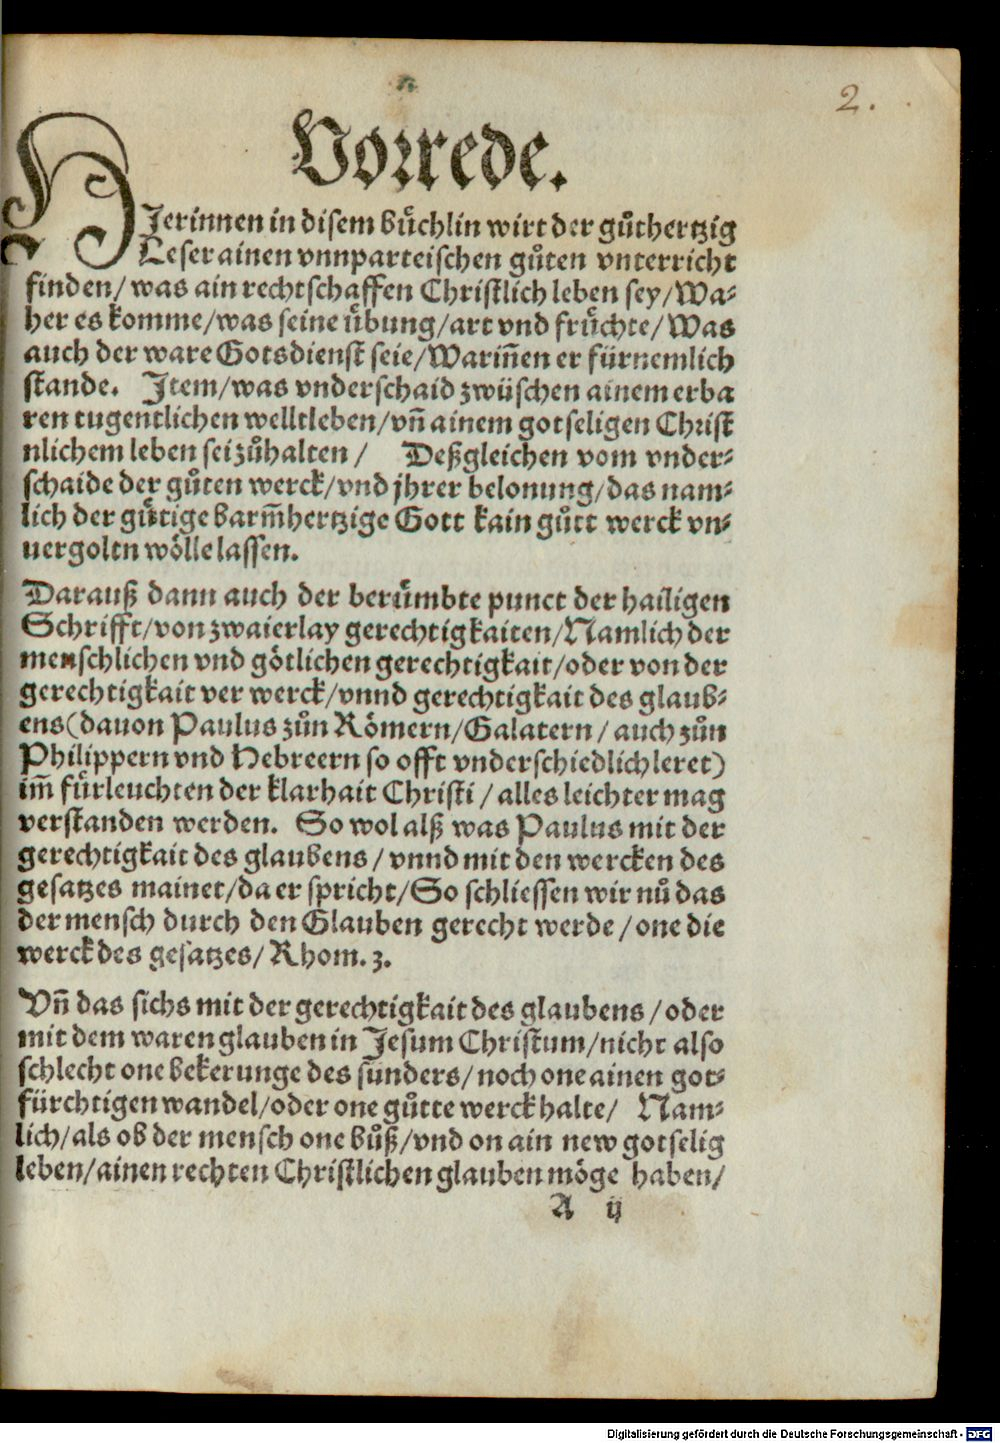 2.
Vorrede.
HJerinnen in disem bůchlin wirt der gůthertzig
Leser ainen vnnparteischen gůten vnterricht
finden/ was ain rechtschaffen Christlich leben sey/ Wa⸗
her es komme/ was seine uͤbung/ art vnd fruͤchte/ Was
auch der ware Gotsdienst seie/ Wariñen er fürnemlich
stande. Jtem/ was vnderschaid zwüschen ainem erba
ren tugentlichen welltleben/ vñ ainem gotseligen Christ
nlichem leben sei zůhalten/ Deßgleichen vom vnder⸗
schaide der gůten werck/ vnd jhrer belonung/ das nam⸗
lich der guͤtige barm̃hertzige Gott kain gůtt werck vn⸗
uergoltn woͤlle lassen.
Darauß dann auch der beruͤmbte punct der hailigen
Schrifft/ von zwaierlay gerechtigkaiten/ Namlich der
menschlichen vnd goͤtlichen gerechtigkait/ oder von der
gerechtigkait ver werck/ vnnd gerechtigkait des glaub⸗
ens (dauon Paulus zůn Roͤmern/ Galatern/ auch zůn
Philippern vnd Hebreern so offt vnderschiedlich leret)
im̃ fürleuchten der klarhait Christi/ alles leichter mag
verstanden werden. So wol alß was Paulus mit der
gerechtigkait des glaubens/ vnnd mit den wercken des
gesatzes mainet/ da er spricht/ So schliessen wir nů das
der mensch durch den Glauben gerecht werde/ one die
werck des gesatzes/ Rhom. 3.
Vñ das sichs mit der gerechtigkait des glaubens/ oder
mit dem waren glauben in Jesum Christum/ nicht also
schlecht one bekerunge des sünders/ noch one ainen got⸗
fürchtigen wandel/ oder one gůtte werck halte/ Nam⸗
lich/ als ob der mensch one bůß/ vnd on ain new gotselig
leben/ ainen rechten Christlichen glauben moͤge haben/
A ij
Digitalisierung gefördert durch die Deutsche Forschungsgemeinschaft - DFG